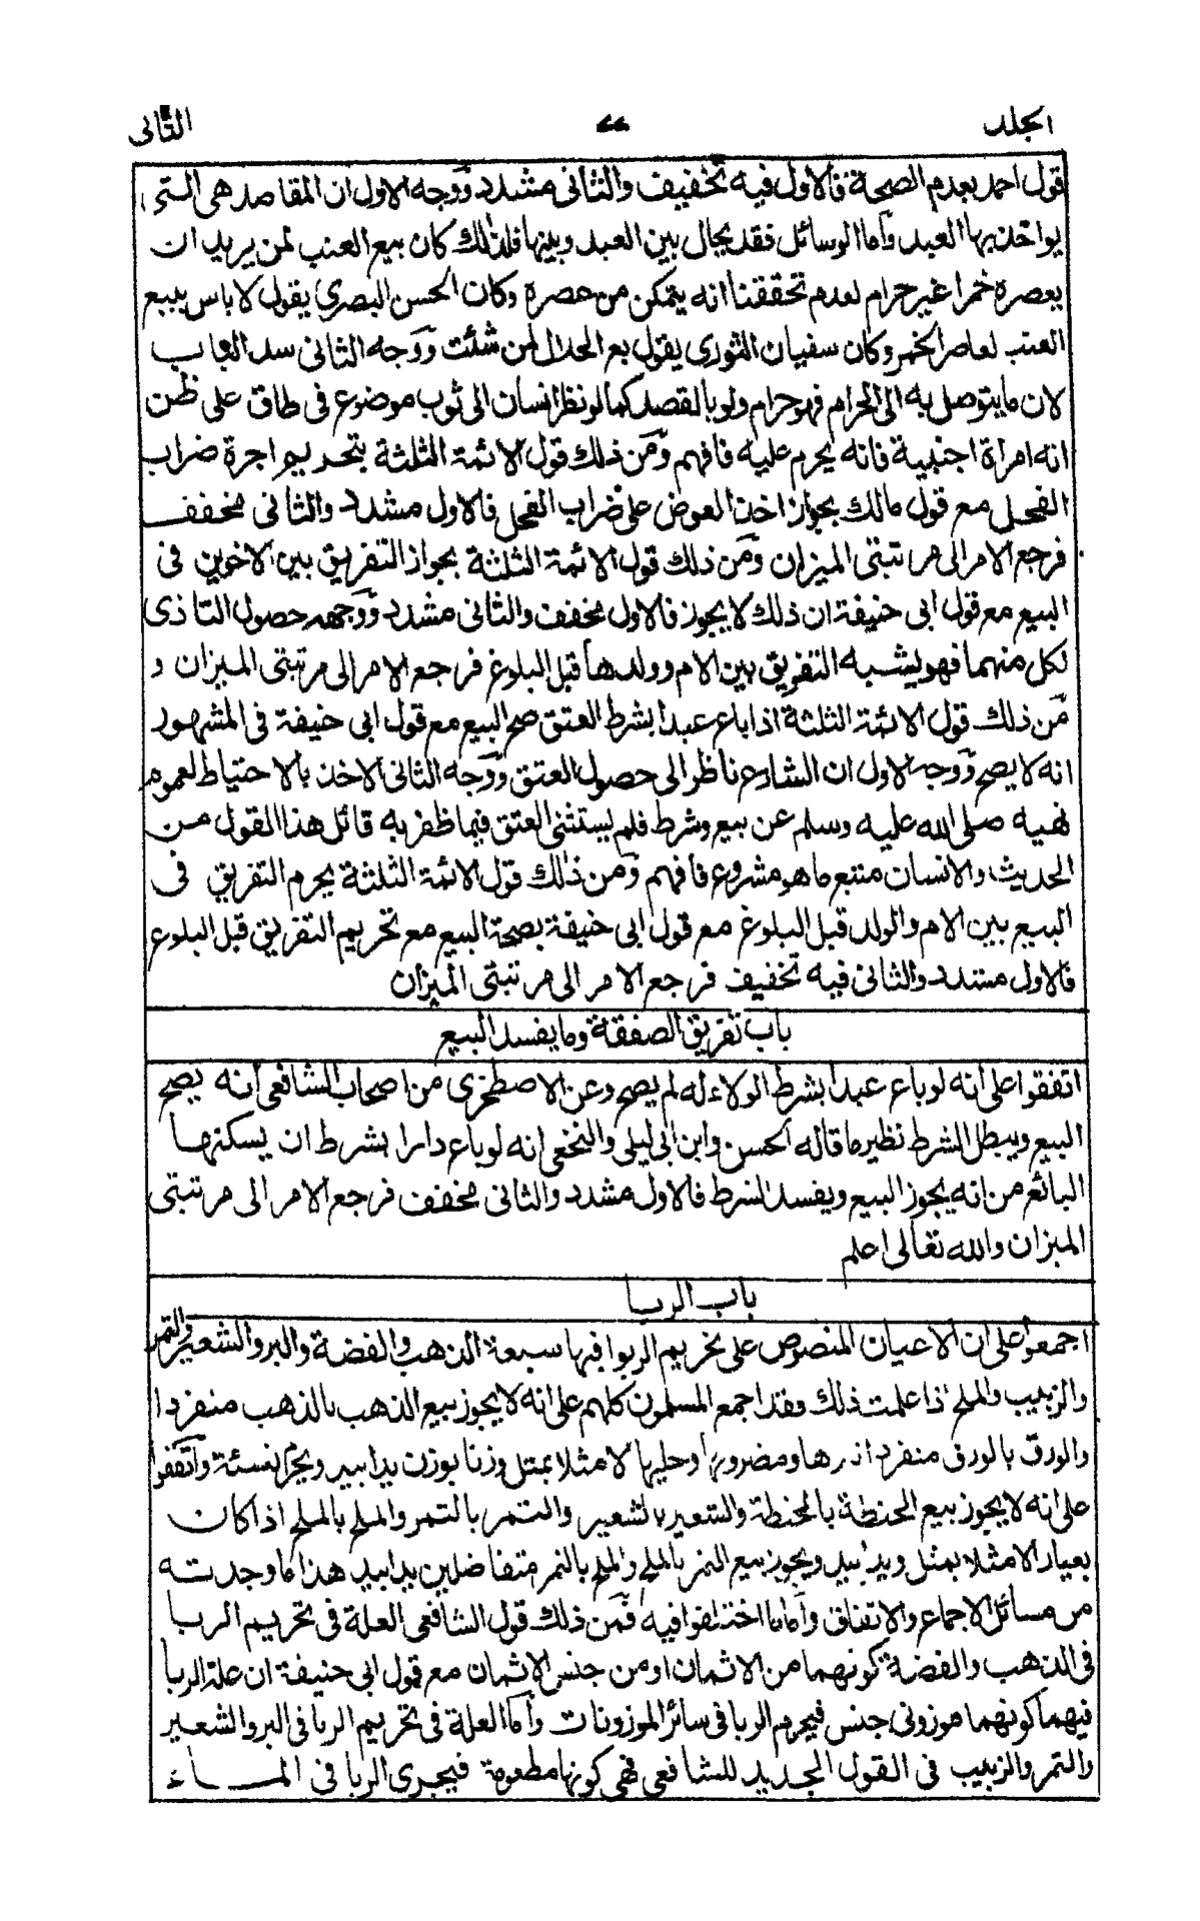 الجلد ٧٧ الثانى
قول احمد بعدم الصحة فالاول فيه تخفيف والثانى مشدد ووجه الاول ان المقاصد هى التى
يواخذ بها العبد واما الوسائل فقد يحال بين العبد وبينها فلذلك كان بيع العنب لمن يريد ان
يعصره خمرا غير حرام لعدم تحققنا انه يتمكن من عصره وكان الحسن البصرى يقول لا باس ببيع
العنب لعاصر الخمر وكان سفيان الثورى يقول بع الحلال لمن شئت ووجه الثانى سد الباب
لان ما يتوصل به الى الحرام فهو حرام ولو بالقصد كما لو نظر انسان الى ثوب موضوع فى طاق على ظن
انه امراة اجنبية فانه يحرم عليه فافهم ومن ذلك قول الائمة الثلثة بتحريم اجرة ضراب
الفحل مع قول مالك بجواز اخذ العوض على ضراب الفحل فالاول مشدد والثانى مخفف
فرجع الامر الى مرتبتى الميزان ومن ذلك قول الائمة الثلثة بجواز التفريق بين الاخوين فى
البيع مع قول ابى حنيفة ان ذلك لا يجوز فالاول مخفف والثانى مشدد ووجهه حصول التاذى
لكل منهما فهو يشبه التفريق بين الام وولدها قبل البلوغ فرجع الامر الى مرتبتى الميزان و
من ذلك قول الائمة الثلثة اذا باع عبدا بشرط العتق صح البيع مع قول ابى حنيفة فى المشهور
انه لا يصح ووجه الاول ان الشارع ناظر الى حصول العتق ووجه الثانى الاخذ بالاحتياط لعموم
نهيه صلى الله عليه وسلم عن بيع وشرط فلم يستثنى العتق فيما ظفر به قائل هذا القول من
الحديث والانسان متبع ما هو مشروع فافهم ومن ذلك قول الائمة الثلثة يحرم التفريق فى
البيع بين الام والولد قبل البلوغ مع قول ابى حنيفة بصحة البيع مع تحريم التفريق قبل البلوغ
فالاول مشدد والثانى فيه تخفيف فرجع الامر الى مرتبتى الميزان
باب تفريق الصفقة وما يفسد البيع
اتفقوا على انه لو باع عبدا بشرط الولاء له لم يصح وعن الاصطخرى من اصحاب الشافعى انه يصح
البيع ويبطل الشرط نظير ما قاله الحسن وابن ابى ليلى والنخعى انه لو باع دارا بشرط ان يسكنها
البائع من انه يجوز البيع ويفسد الشرط فالاول مشدد والثانى مخفف فرجع الامر الى مرتبتى
الميزان والله تعالى اعلم
باب الربا
اجمعوا على ان الاعيان المنصوص على تحريم الربوا فيها سبعة الذهب والفضة والبر والشعير والتمر
والزبيب والملح اذا علمت ذلك فقد اجمع المسلمون كلهم على انه لا يجوز بيع الذهب بالذهب منفردا
والورق بالورق منفردا تبرها ومضروبها وحليها الا مثلا بمثل وزنا بوزن يدا بيد ويحرم نسئة واتفقوا
على انه لا يجوز بيع الحنطة بالحنطة والشعير بالشعير والتمر بالتمر والملح بالملح اذا كان
بعيار الا مثلا بمثل ويدا بيد ويجوز بيع التمر بالملح والملح بالتمر متفاضلين يدا بيد هذا ما وجدته
من مسائل الاجماع والاتفاق واما ما اختلفوا فيه فمن ذلك قول الشافعى العلة فى تحريم الربا
فى الذهب والفضة كونهما من الاثمان او من جنس الاثمان مع قول ابى حنيفة ان علة الربا
فيهما كونهما موزونى جنس فيحرم الربا فى سائر الموزونات واما العلة فى تحريم الربا فى البر والشعير
والتمر والزبيب فى القول الجديد للشافعى فهى كونها مطعومة فيجرى الربا فى الماء